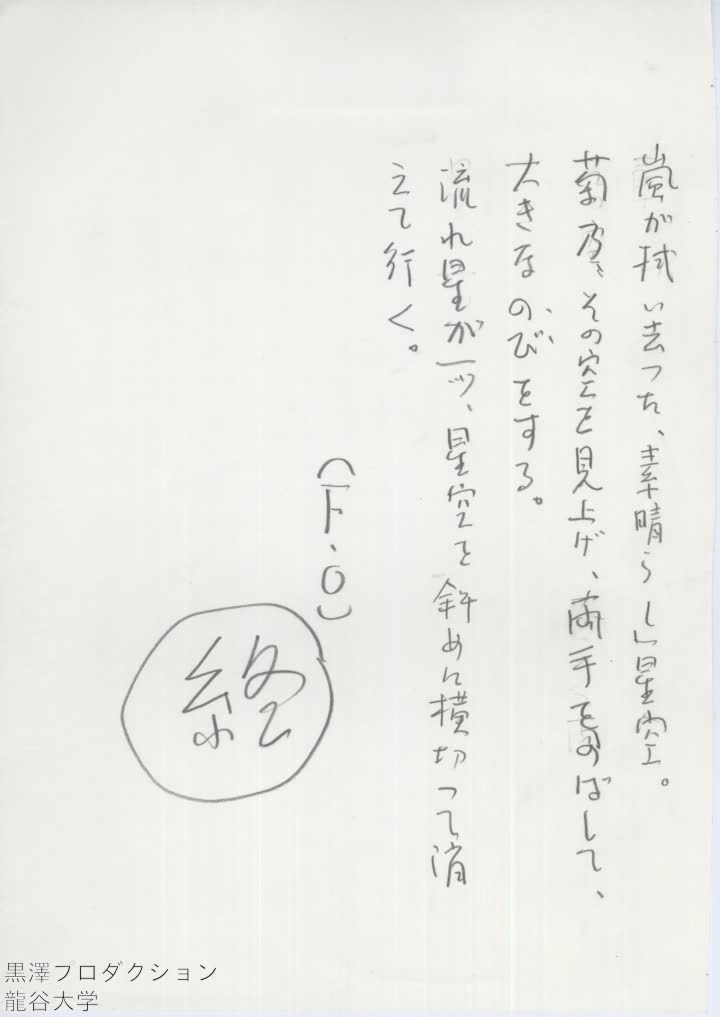 嵐が拭い去った、素晴らしい星空。
菊康、その空を見上げ、両手をのばして、
大きなのびをする。
流れ星が一ツ、星空を斜めに横切って消
えて行く。
(F・O)
終
黒澤プロダクション
龍谷大学